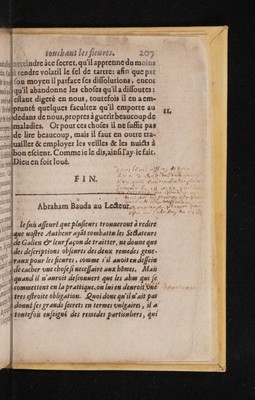 touchant les fieures. 207
atteindre à ce secret, qu'il apprenne du moins
à rendre volatil le sel de tartre; afin que par
son moyen il parface ses dissolutions, encor
qu'il abandonne les choses qu'il a dissoutes:
estant digeré en nous, toutefois il en a em-
prunté quelques facultez qu'il emporte au 11.
dedans de nous, propres à guerir beaucoup de
maladies. Or pour ces choses il ne suffit pas
de lire beaucoup, mais il faut en outre tra-
uailler & employer les veilles & les nuicts à
bon escient. Comme ie le dis, ainsi l'ay-ie fait.
Dieu en soit loué.
FIN.
Abraham Bauda au Lecteur.
Ie suis asseuré que plusieurs trouueront à redire
que nostre Autheur ayãt combattu les Sectateurs
de Galien & leur façon de traitter, ne donne que
des descriptions obscures des deux remedes gene-
raux pour les fieures, comme s'il auoit eu dessein
de cacher vne chose si necessaire aux hõmes. Mais
quand il n'auroit descouuert que les abus qui se
commettent en la prattique, on lui en deuroit vne
tres estroite obligation. Quoi donc qu'il n'ait pas
donné ses grands secrets en termes vulgaires, il a
toutefois enseigné des remedes particuliers, qui